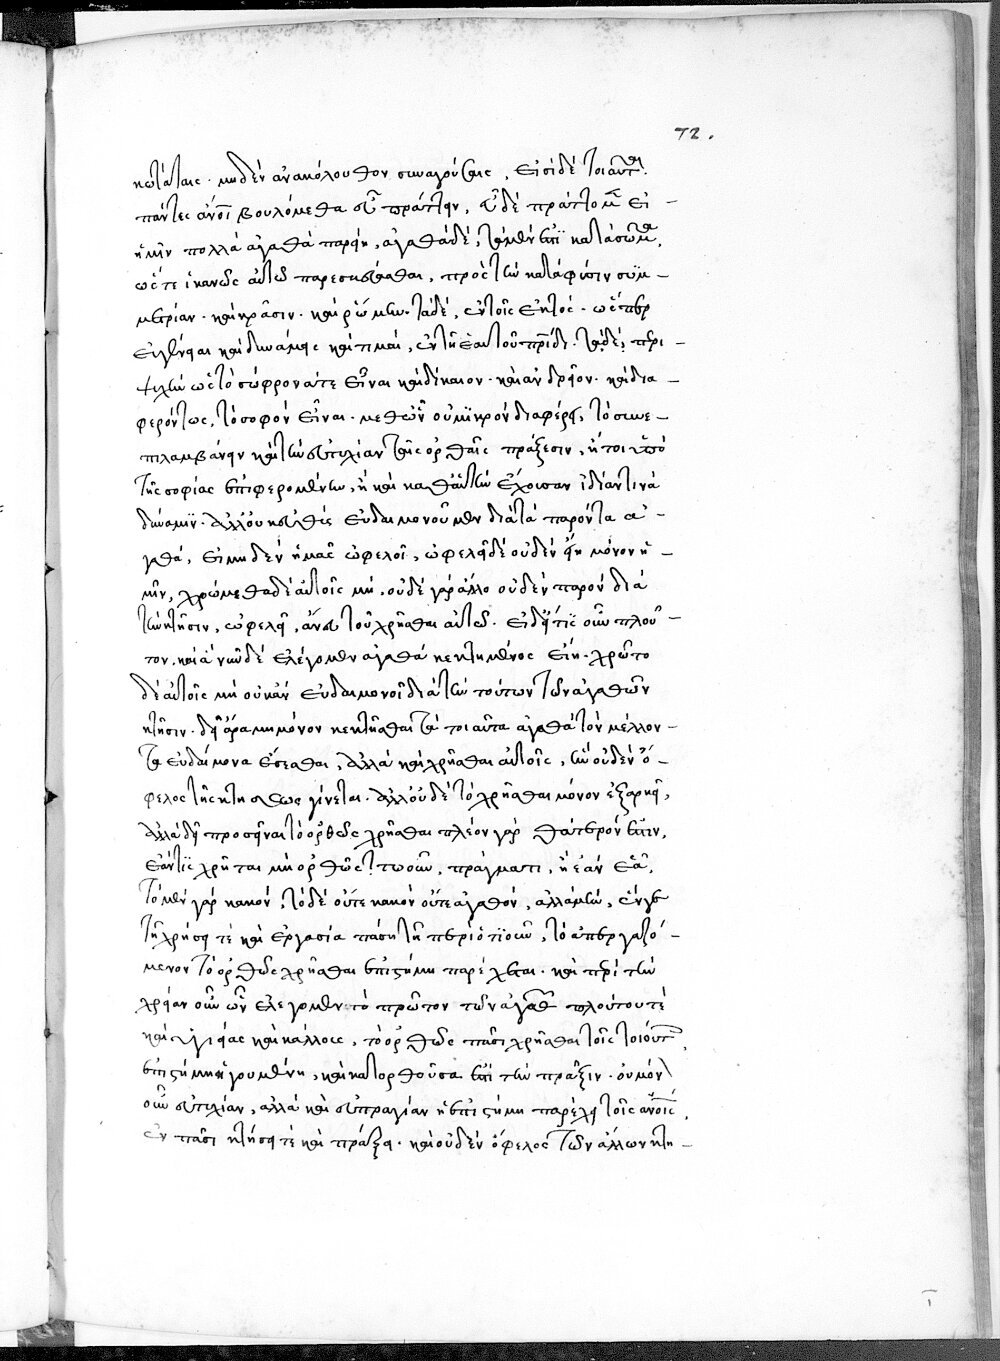 72.
κωτάταις. μηδὲν ἀνακόλουθον συναγούσαις. εἰσὶ δὲ τοιαῦται.
πάντες ἄνοι βουλόμεθα εὖ πράττειν. εὖ δὲ πράττομεν εἰ
ἡμῖν πολλὰ ἀγαθὰ παρείη. ἀγαθὰ δὲ, τὰ μὲν ἐπὶ κατὰ σῶμα,
ὥστε ἱκανῶς αὐτῷ παρεσκευάσθαι, πρὸς τὴν κατὰ φύσιν συμ
μετρίαν. καὶ κρᾶσιν. καὶ ῥώμην. τὰ δὲ, ἐν τοῖς ἐκτός. ὥσπερ
εὐγένειαι καὶ δυνάμεις καὶ τιμαὶ, ἐν τῇ ἑαυτοῦ πρίδι. τὰ δὲ, περὶ
ψυχὴν ὡς τὸ σώφρονά τε εἶναι καὶ δίκαιον. καὶ ἀνδρεῖον. καὶ δια
φερόντως, τὸ σοφὸν εἶναι. μεθ' ὧν οὐ μικρὸν διαφέρει, τὸ συνε
πιλαμβάνειν καὶ τὴν εὐτυχίαν ταῖς ὀρθαῖς πράξεσιν, ἤτοι ὑπὸ
τῆς σοφίας ἐπιφερομένην, ἢ καὶ καθ' αὑτὴν ἔχουσαν ἰδίαν τινὰ
δύναμιν. ἀλλ' οὐκ εὐθὺς εὐδαιμονοῦμεν διὰ τὰ παρόντα ἀ
γαθά, εἰ μηδὲν ἡμᾶς ὠφελοῖ, ὠφελεῖ δὲ οὐδὲν εἰ εἴη μόνον ἡ
μῖν, χρώμεθα δὲ αὐτοῖς μή. οὐδὲ γὰρ ἄλλο οὐδὲν παρὸν διὰ
τὴν κτῆσιν, ὠφελεῖ, ἄνευ τοῦ χρῆσθαι αὐτῷ. εἰ δή τις οὖν πλοῦ
τον. καὶ ἃ νῦν δὲ ἐλέγομεν ἀγαθὰ κεκτημένος εἴη. χρῶτο
δὲ αὐτοῖς μὴ οὐκ ἂν εὐδαιμονοῖ διὰ τὴν τούτων τῶν ἀγαθῶν
κτῆσιν. δεῖ ἄρα μὴ μόνον κεκτῆσθαι τὰ τοιαῦτα ἀγαθὰ τὸν μέλλον
τα εὐδαίμονα ἔσεσθαι, ἀλλὰ καὶ χρῆσθαι αὐτοῖς, ὡς οὐδὲν ὄ
φελος τῆς κτήσεως γίνεται. ἀλλ' οὐδὲ τὸ χρῆσθαι μόνον ἐξαρκεῖ,
ἀλλὰ δεῖ προσεῖναι τὸ ὀρθῶς χρῆσθαι πλέον γὰρ θάτερόν ἐστιν,
ἐάν τις χρῆται μὴ ὀρθῶς ὁτῳοῦν, πράγματι, ἢ ἐὰν ἐᾷ.
τὸ μὲν γὰρ κακὸν, τὸ δὲ οὔτε κακὸν οὔτε ἀγαθόν. ἀλλὰ μὴν, ἔν γε
τῇ χρήσει τε καὶ ἐργασία πάσῃ τῇ περὶ ὁτιοῦν, τὸ ἀπεργαζό
μενον τὸ ὀρθῶς χρῆσθαι ἐπιστήμη παρέχεται. καὶ περὶ τὴν
χρείαν οὖν ὧν ἐλέγομεν τὸ πρῶτον τῶν ἀγαθῶν πλούτου τὲ
καὶ ὑγιείας καὶ κάλλους, τὸ ὀρθῶς πᾶσι χρῆσθαι τοῖς τοιούτοις,
ἐπιστήμη ἡγουμένη, καὶ κατορθοῦσα ἐπὶ τὴν πρᾶξιν. οὐ μόνον
οὖν εὐτυχίαν, ἀλλὰ καὶ εὐπραγίαν ἡ ἐπιστήμη παρέχει τοῖς ἀνοις,
ἐν πᾶσι κτήσει τὲ καὶ πράξει. καὶ οὐδὲν ὄφελος τῶν ἄλλων κτη